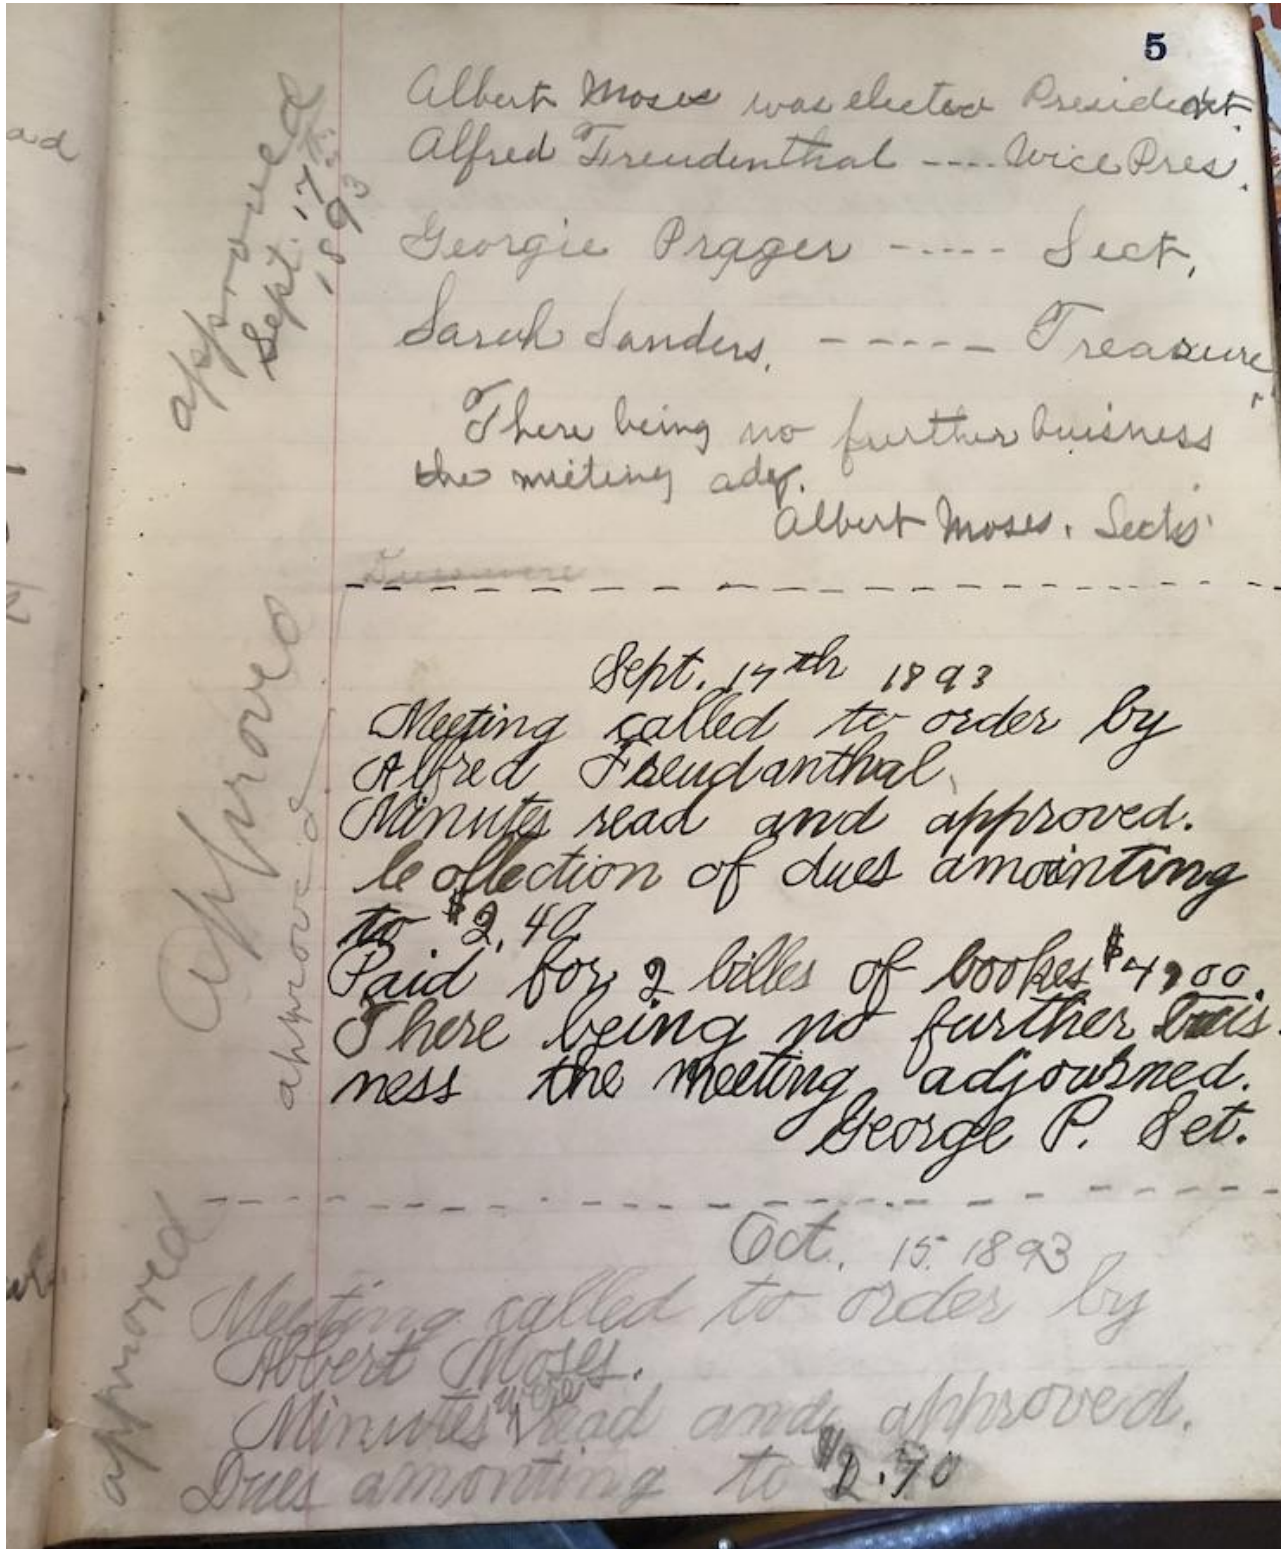 5
Albert Moses was elected President.
Alfred Freudenthal ---- Vice Pres.
Georgie Prager ----- Sect,
Sarah Sanders, ----- Treasure
There being no further buisness
the meeting adj.
Albert Moses. Secty
approved
Sept. 17th
1893
Dues were
Sept. 17th 1893
Meeting called to order by
Alfred Freudanthal
Minutes read and approved.
Collection of dues amointing
to $2,40.
Paid for 2 billes of bookes $4,00.
There being no further buis-
ness the meeting adjourned.
George P. Set.
Approved
approved
Oct. 15. 1893
Meeting called to order by
Albert Moses.
Minutes were read and approved.
Dues amonting to $2.70
approved
ad